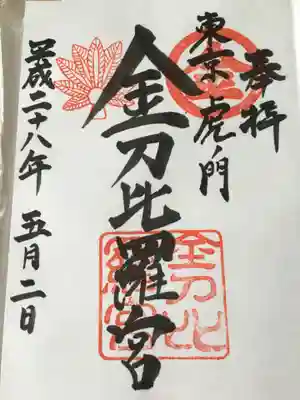 奉拝
東京虎ノ門
金
金刀比羅宮
金刀比羅宮
平成二十八年 五月二日